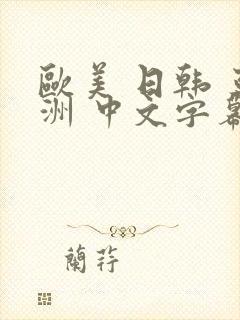 歐美 日韩
洲 中文字幕
蘭荇